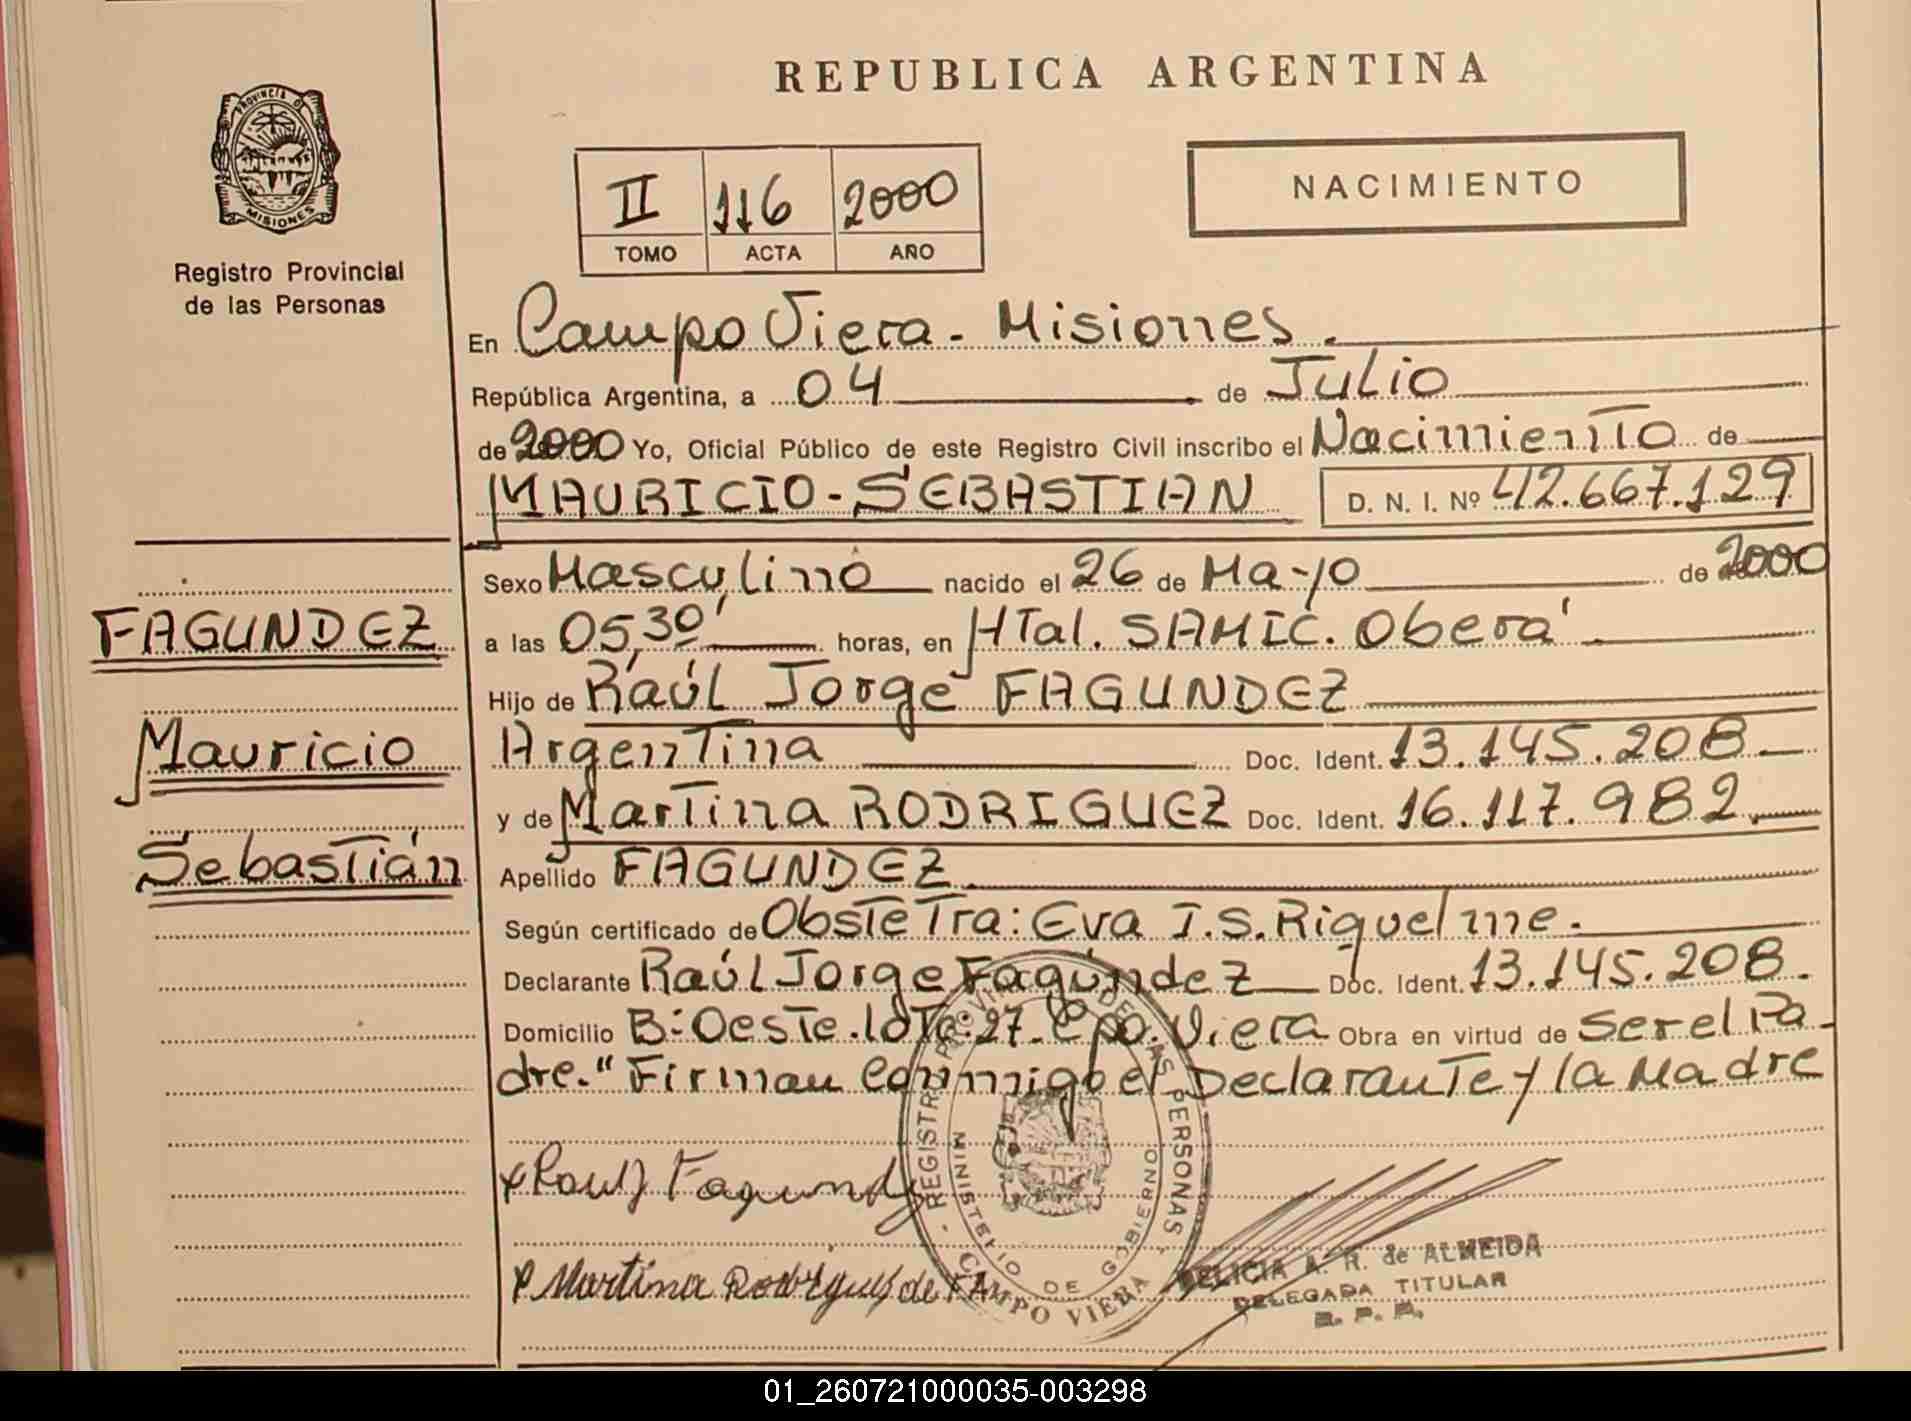 REPUBLICA ARGENTINA
PROVINCIA D
MISIONES
Registro Provincial
de las Personas
II 116 2000
TOMO ACTA AÑO
NACIMIENTO
En Campo Viera - Misiones.
República Argentina, a 04 de Julio
de 2000 Yo, Oficial Público de este Registro Civil inscribo el Nacimiento de
MAURICIO - SEBASTIAN D. N. I. Nº 42.667.129
Sexo Masculino nacido el 26 de Mayo de 2000
FAGUNDEZ
a las 05,30' horas, en HTal. SAMIC. Oberá.
Hijo de Raúl Jorge FAGUNDEZ
Mauricio
Argentina Doc. Ident. 13.145.208
y de Martina RODRIGUEZ Doc. Ident. 16.117.982
Sebastián
Apellido FAGUNDEZ.
Según certificado de ObsteTra: Eva I.S. Riquelme.
Declarante Raúl Jorge Fagúndez Doc. Ident. 13.145.208.
Domicilio B: Oeste. lote. 27 - Cpo. Viera Obra en virtud de ser el Pa-
dre." Firman Conmigo el Declarante y la Madre
x Raul J Fagundez
Martina Rodriguez de FA
REGISTRO PROVINCIAL DE LAS PERSONAS
MINISTERIO DE GOBIERNO
CAMPO VIERA
DELICIA A. R. de ALMEIDA
DELEGADA TITULAR
R. P. P.
01_260721000035-003298